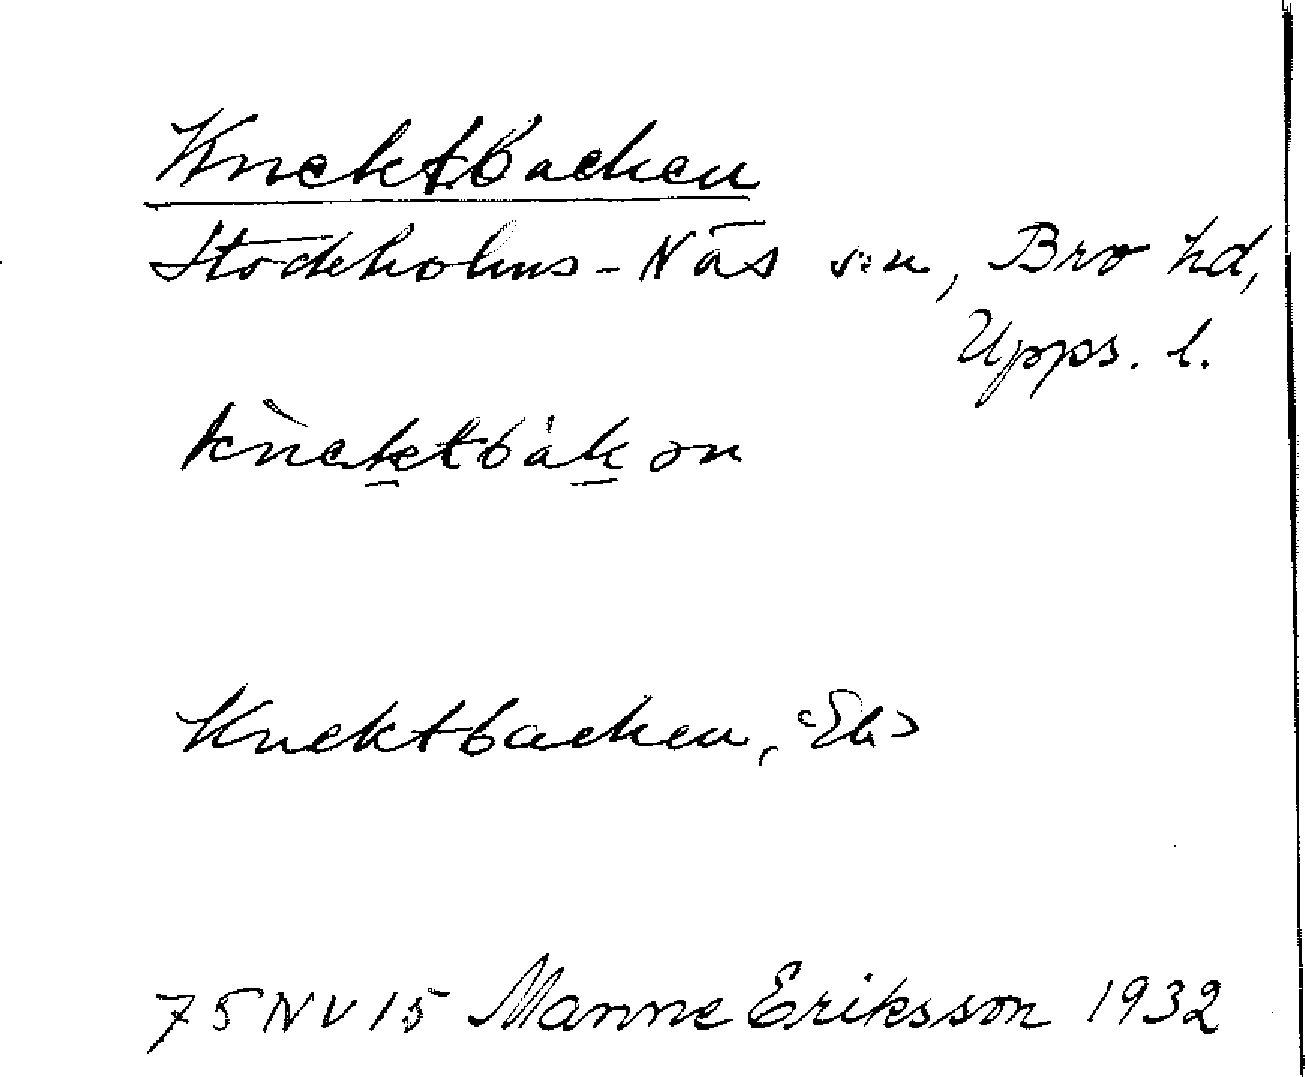 Knektbacken
Stockholms-Näs sn, Bro hd,
Upps. l.
knektbackan
Knektbacken, <Ek>
75NV15 Manne Eriksson 1932